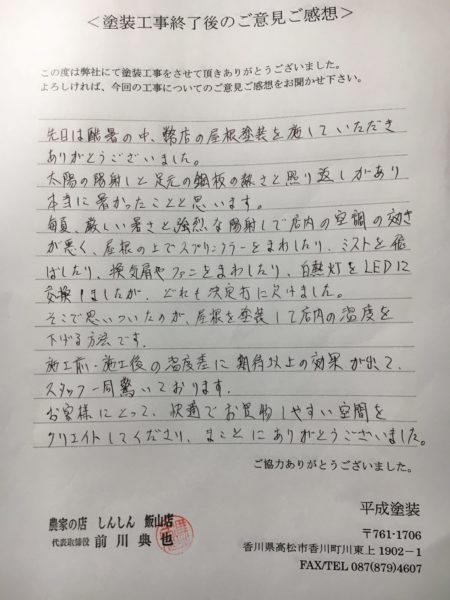 <塗装工事終了後のご意見ご感想>
この度は弊社にて塗装工事をさせて頂きありがとうございました。
よろしければ、今回の工事についてのご意見ご感想をお聞かせ下さい。
先日は酷暑の中、弊店の屋根塗装を施していただき
ありがとうございました。
太陽の陽射しと足元の鋼板の熱さと照り返しがあり
本当に暑かったことと思います。
毎夏、厳しい暑さと強烈な陽射しで店内の空調の効き
が悪く、屋根の上でスプリンクラーをまわしたり、ミストを飛
ばしたり、換気扇やファンをまわしたり、白熱灯をLEDに
交換しましたが、どれも決定打に欠けました。
そこで思いついたのが、屋根を塗装して店内の温度を
下げる方法です。
施工前・施工後の温度差に期待以上の効果が出て、
スタッフ一同驚いております。
お客様にとって、快適でお買物しやすい空間を
クリエイトしてくださり、まことにありがとうございました。
ご協力ありがとうございました。
農家の店 しんしん 飯山店
代表取締役 前川典也
平成塗装
〒761-1706
香川県高松市香川町川東上1902-1
FAX/TEL 087(879)4607